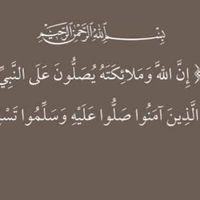 بِسْمِ اللَّهِ الرَّحْمَٰنِ الرَّحِيمِ
﴿ إِنَّ اللَّهَ وَمَلَائِكَتَهُ يُصَلُّونَ عَلَى النَّبِيِّ
الَّذِينَ آمَنُوا صَلُّوا عَلَيْهِ وَسَلِّمُوا تَسْ